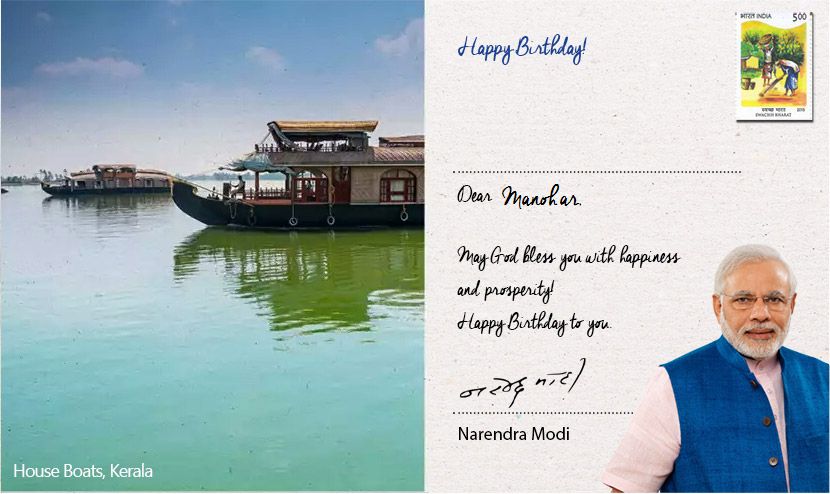 Happy Birthday!
भारत INDIA 500
स्वच्छ भारत 2015
SWACHH BHARAT
Dear Manohar.
May God bless you with happiness
and prosperity!
Happy Birthday to you.
नरेन्द्र मोदी
Narendra Modi
House Boats, Kerala